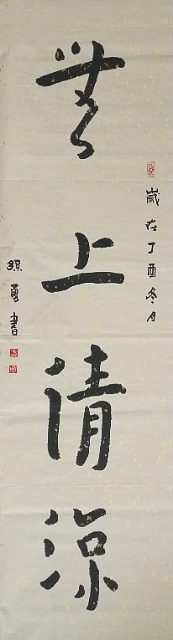 歲在丁酉冬月
無上清涼
勇書